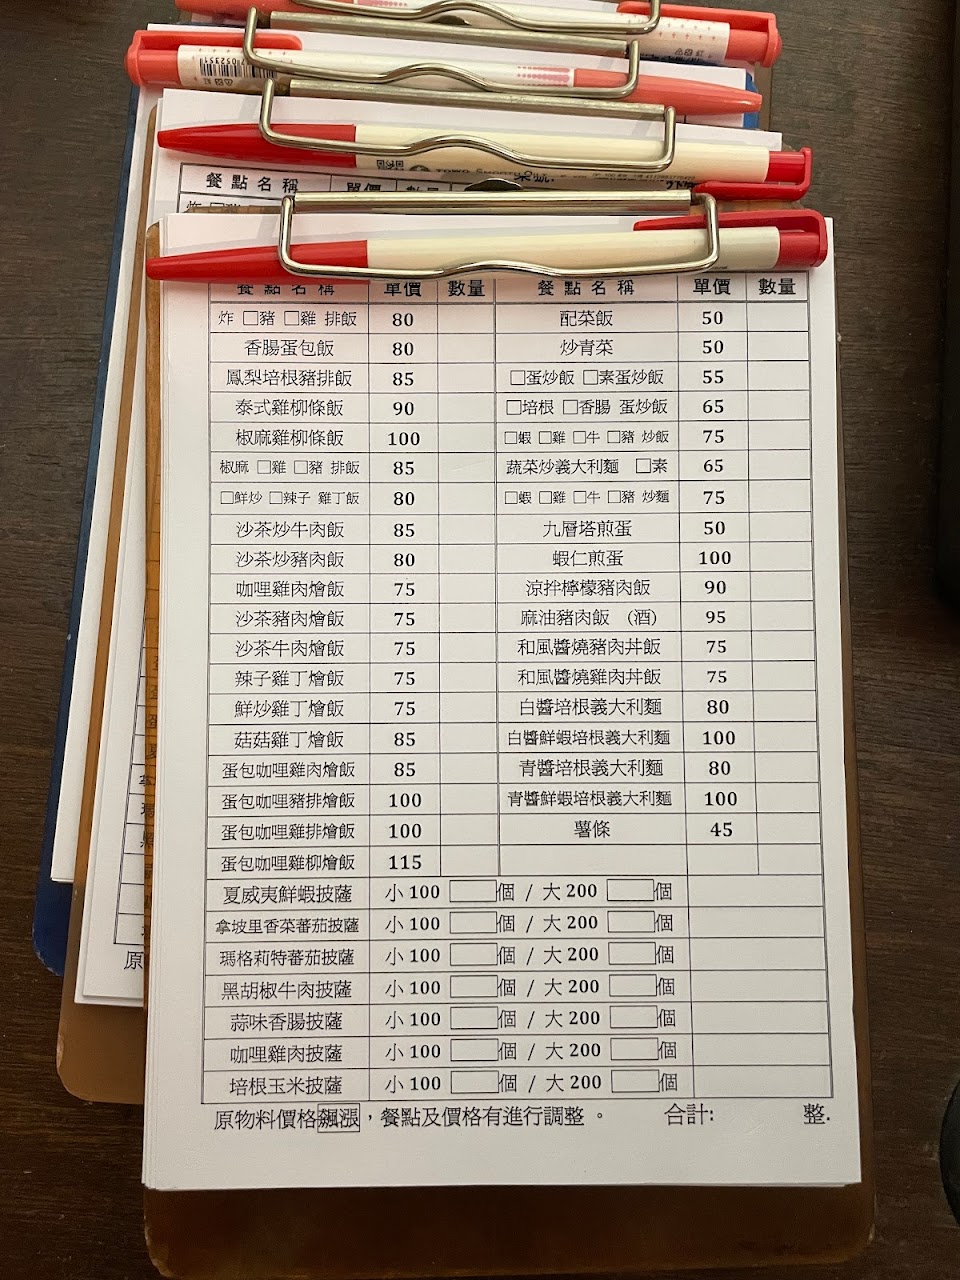 餐點名稱 單價 數量
餐點名稱 單價 數量 餐點名稱 單價 數量
炸 □豬 □雞 排飯 80 配菜飯 50
香腸蛋包飯 80 炒青菜 50
鳳梨培根豬排飯 85 □蛋炒飯 □素蛋炒飯 55
泰式雞柳條飯 90 □培根 □香腸 蛋炒飯 65
椒麻雞柳條飯 100 □蝦 □雞 □牛 □豬 炒飯 75
椒麻 □雞 □豬 排飯 85 蔬菜炒義大利麵 □素 65
□鮮炒 □辣子 雞丁飯 80 □蝦 □雞 □牛 □豬 炒麵 75
沙茶炒牛肉飯 85 九層塔煎蛋 50
沙茶炒豬肉飯 80 蝦仁煎蛋 100
咖哩雞肉燴飯 75 涼拌檸檬豬肉飯 90
沙茶豬肉燴飯 75 麻油豬肉飯 (酒) 95
沙茶牛肉燴飯 75 和風醬燒豬肉丼飯 75
辣子雞丁燴飯 75 和風醬燒雞肉丼飯 75
鮮炒雞丁燴飯 75 白醬培根義大利麵 80
菇菇雞丁燴飯 85 白醬鮮蝦培根義大利麵 100
蛋包咖哩雞肉燴飯 85 青醬培根義大利麵 80
蛋包咖哩豬排燴飯 100 青醬鮮蝦培根義大利麵 100
蛋包咖哩雞排燴飯 100 薯條 45
蛋包咖哩雞柳燴飯 115
夏威夷鮮蝦披薩 小100 □個 / 大200 □個
拿坡里香菜蕃茄披薩 小100 □個 / 大200 □個
瑪格莉特蕃茄披薩 小100 □個 / 大200 □個
黑胡椒牛肉披薩 小100 □個 / 大200 □個
蒜味香腸披薩 小100 □個 / 大200 □個
咖哩雞肉披薩 小100 □個 / 大200 □個
培根玉米披薩 小100 □個 / 大200 □個
原物料價格飆漲，餐點及價格有進行調整。 合計: 整.